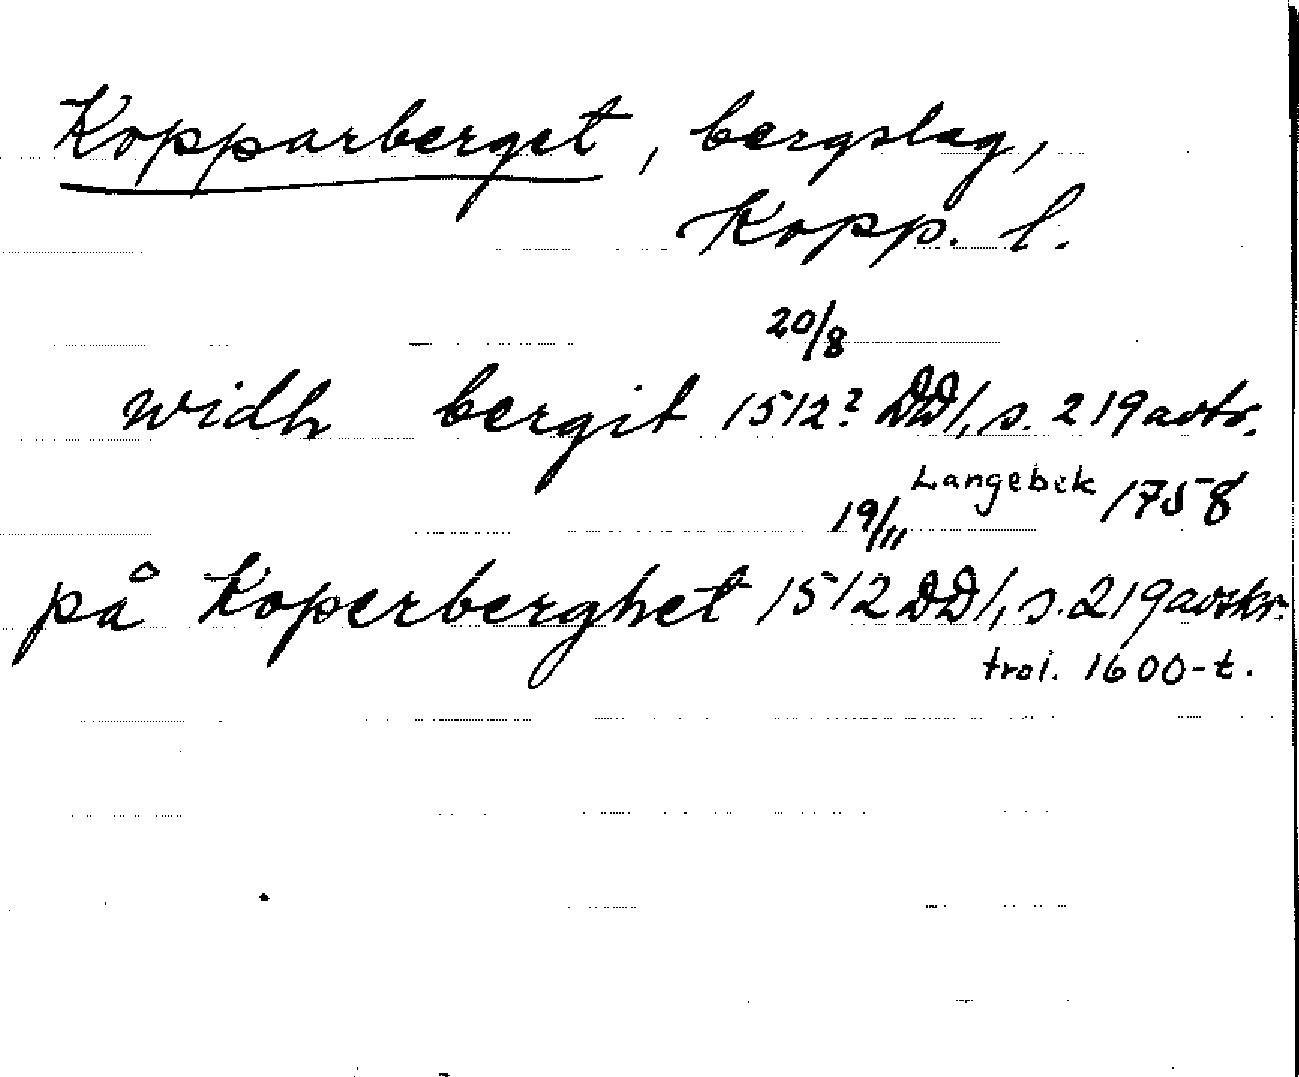 Kopparberget, bergslag,
Kopp. l.
20/8
widh bergit 1512? DD1, s. 219 avskr.
Langebek 1758
19/11
på Koperberghet 1512 DD1, s. 219 avskr.
trol. 1600-t.